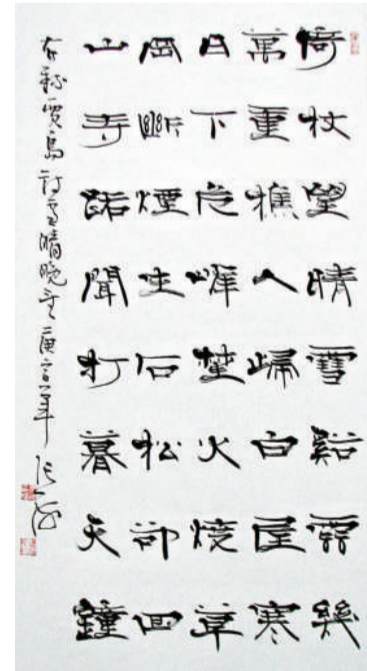 倚杖望晴雪谿雲幾
萬重樵人歸白屋寒
日下危峰埜火燒草
岡斷煙生石松却回
山寺路聞打暮天鐘
右錄賈島詩雪晴晚望庚寅年張海